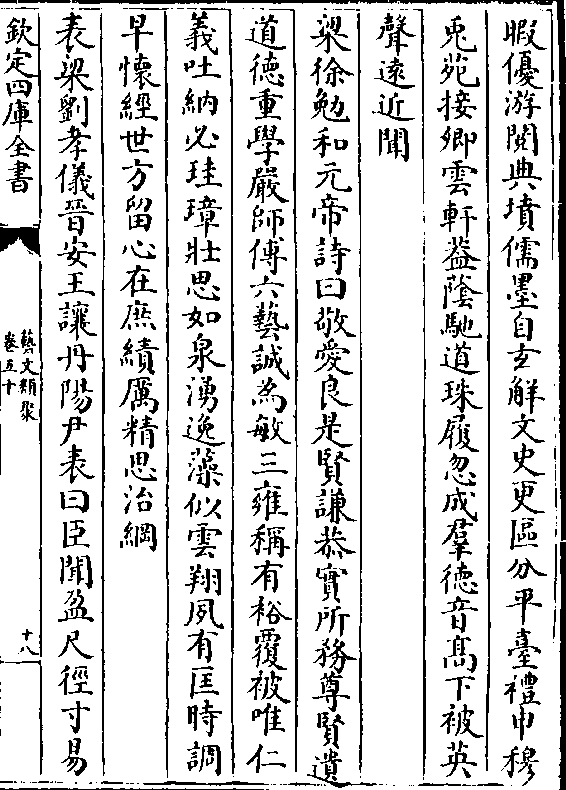 暇優游閲典墳儒墨自玄解文史更區分平臺禮申穆
兎苑接卿雲軒葢蔭馳道珠履忽成羣德音髙下被英
聲遠近聞
梁徐勉和元帝詩曰敬愛良是賢謙恭實所務尊賢遺
道德重學嚴師傅六藝誠為敏三雍稱有裕覆被唯仁
義吐納必珪璋壯思如泉湧逸藻似雲翔夙有匡時調
早懷經世方留心在庶績厲精思治綱
表梁劉孝儀晉安王讓丹陽尹表曰臣聞盈尺徑寸易
欽定四庫全書
藝文類聚
卷五十
十八